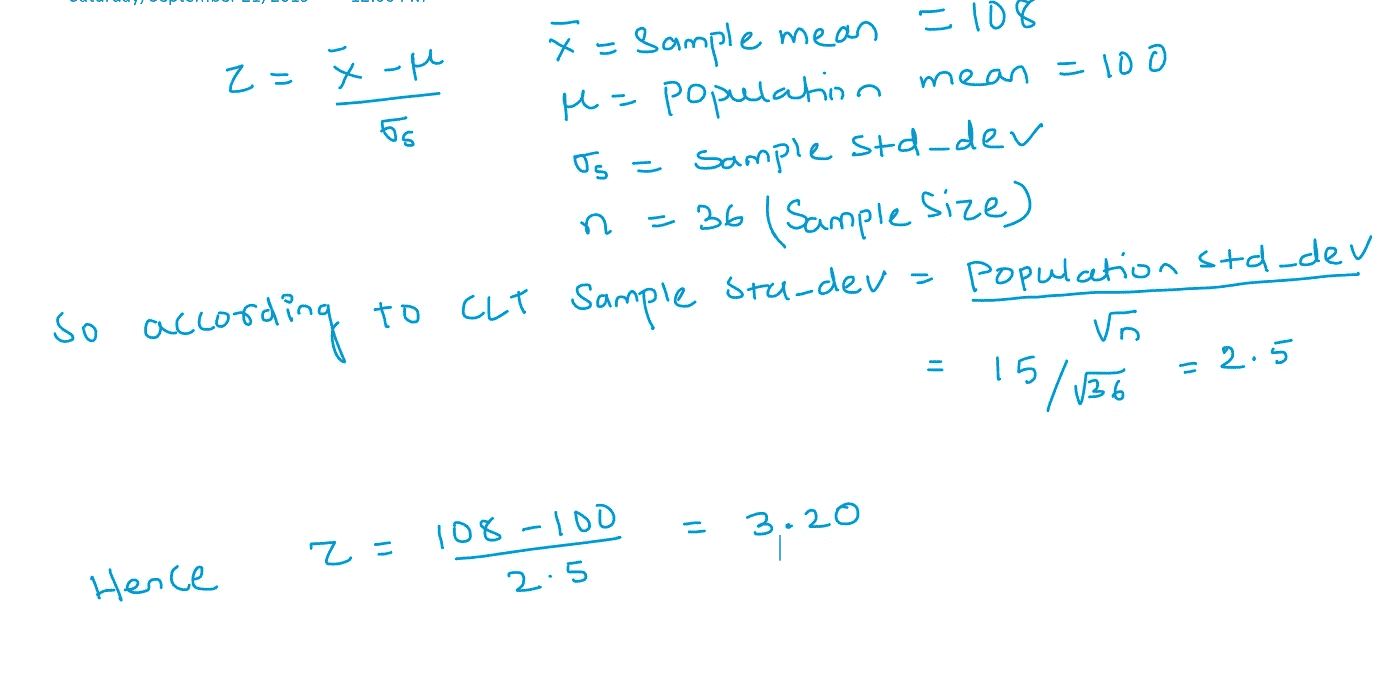 z = x̄ - μ / σs
x̄ = Sample mean = 108
μ = Population mean = 100
σs = Sample std_dev
n = 36 (Sample Size)
So according to CLT Sample std-dev = Population std_dev / √n
= 15/√36 = 2.5
Hence z = 108 - 100 / 2.5 = 3.20